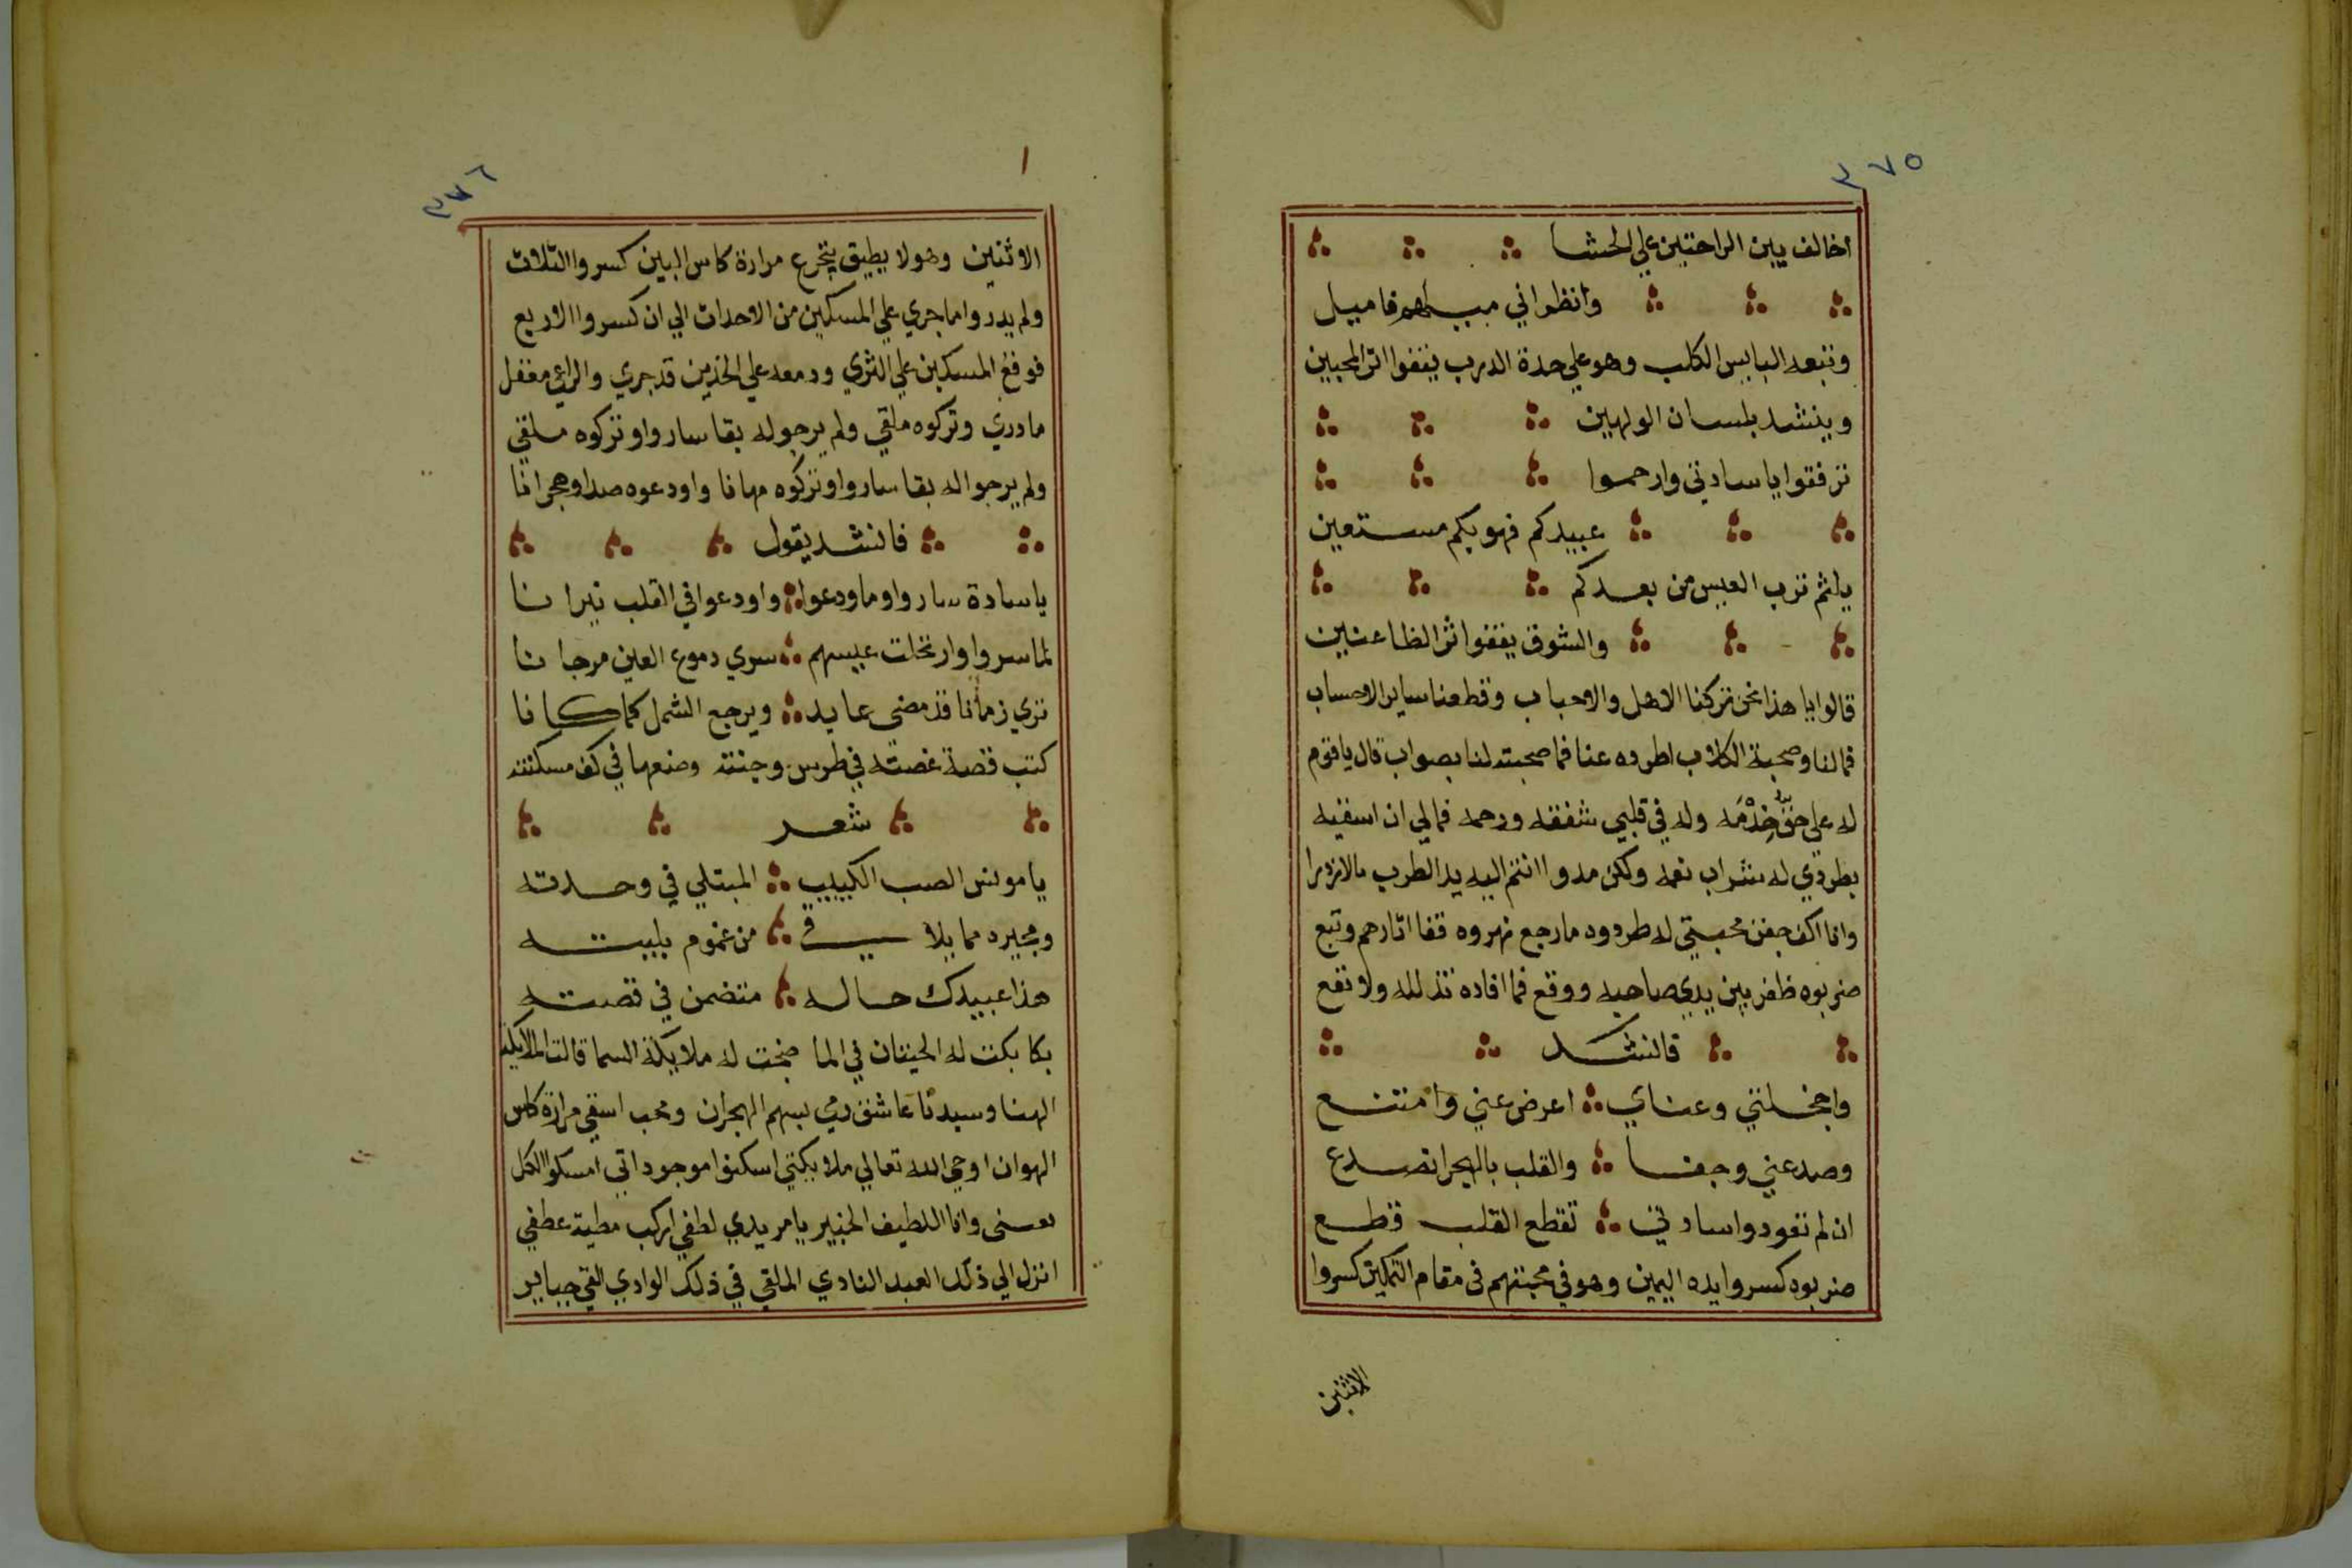 ٣٧٥
اخالف بين الراحتين علي الحشا
وانظراني مبساهم فاميل
وتبعه البايس الكلب وهو علي حدة الدرب يقفوا اثر المحبين
وينشد بلسان الولهين
ترفقوا يا سادتي وارحموا
عبيدكم فهو بكم مستعين
يلثم ترب العيس من بعدكم
والشوق يقفوا اثر الظاعنين
قالوا يا هذا نحن تركنا الاهل والاحباب وقطعنا ساير الاحساب
فما لنا وصحبة الكلاب اطرده عنا فما صحبته لنا بصواب قال يا قوم
له علي حق خدمه وله في قلبي شفقه ورحمه فمالي ان اسقيه
بطردي له شراب نقمه ولكن مدوا انتم اليه يد الطرب بالازدرا
وانا اكف جفن محبتي له طردوه ما رجع نهروه قفا اثارهم وتبع
ضربوه ظفر بين يدي صاحبه ووقع فما افاده تذلله ولا نفع
فانشد
واخجلتي وعناي اعرض عني وامتنع
وصد عني وجفا والقلب بالهجر انصدع
ان لم تعودوا سادتي تقطع القلب قطع
ضربوه كسروا يده اليمين وهو في محبتهم في مقام التمكين كسروا
الاثنين
٣٧٦
١
الاثنين وهو لا يطيق يتجرع مرارة كاس البين كسروا الثلاث
ولم يدروا ما جري علي المسكين من الاحداث الي ان كسروا الاربع
فوقع المسكين علي الثري ودمعه علي الخدين قد جري والراعي مغفل
ما دري وتركوه ملقي ولم يرجو له بقا ساروا وتركوه ملقي
ولم يرجوا له بقا ساروا وتركوه مهانا واودعوه صدا وهجرانا
فانشد يقول
يا سادة ساروا وما ودعوا واودعوا في القلب نيرانا
لما سروا وارتحلت عيسهم سري دموع العين مرجانا
تري زمانا قد مضي عايد ويرجع الشمل كما كانا
كتب قصة غصته في طرس وجنته وضعها في كف مسكنته
شعر
يا مونس الصب الكييب المبتلي في وحدته
ومجيره مما يلاقي من غموم بليته
هذا عبيدك حاله متضمن في قصته
بكا بكت له الحيتان في الما ضجت له ملايكة السما قالت الملايكة
الهنا وسيدنا عاشق رمي بسهم الهجران ومحب اسقي مرارة كاس
الهوان اوحي الله تعالي ملايكتي اسكنوا موجوداتي امسكوا الكل
عنى وانا اللطيف الخبير يا مريدي لطفي اركب مطية عطفي
انزل الي ذلك العبد النادي الملقي في ذلك الوادي القي جباير